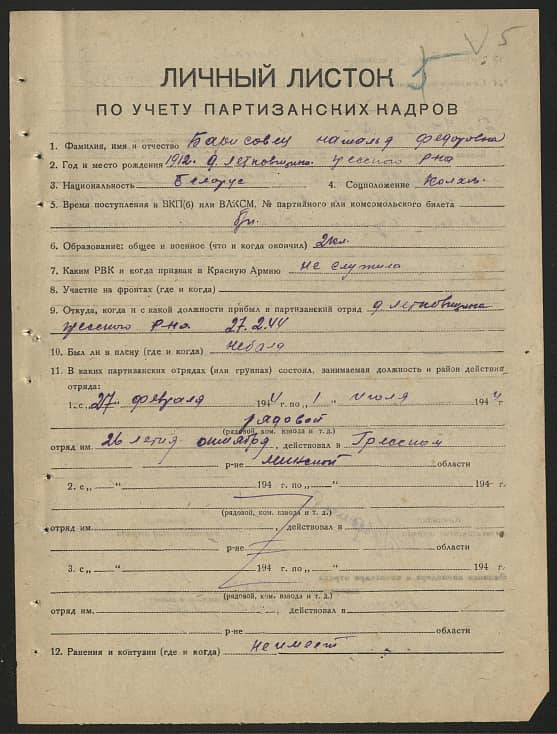 5
V 5
ЛИЧНЫЙ ЛИСТОК
ПО УЧЕТУ ПАРТИЗАНСКИХ КАДРОВ
1. Фамилия, имя и отчество Барисовец наталя Федоровна
2. Год и место рождения 1912 г. д летковщина р-на
3. Национальность Белорус 4. Соцположение Колхоз.
5. Время поступления в ВКП(б) или ВЛКСМ, № партийного или комсомольского билета
бп.
6. Образование: общее и военное (что и когда окончил) 2кл.
7. Каким РВК и когда призван в Красную Армию не служила
8. Участие на фронтах (где и когда)
9. Откуда, когда и с какой должности прибыл в партизанский отряд д летковщина
р-на 27.2.44
10. Был ли в плену (где и когда) небыла
11. В каких партизанских отрядах (или группах) состоял, занимаемая должность и район действия
отряда:
1. с „27 февраля 1944 г. по „1 " июля 1944
рядовой
(рядовой, ком. взвода и т. д.)
отряд им. 26 летия октября, действовал в Гресском
р-не минской области
2. с „ — " 194 г. по „ — " 194 г.
(рядовой, ком. взвода и т. д.)
отряд им. , действовал в
р-не области
3. с „ — " 194 г. по „ — " 194 г.
(рядовой, ком. взвода и т. д.)
отряд им. , действовал в
р-не области
12. Ранения и контузии (где и когда) неимеет